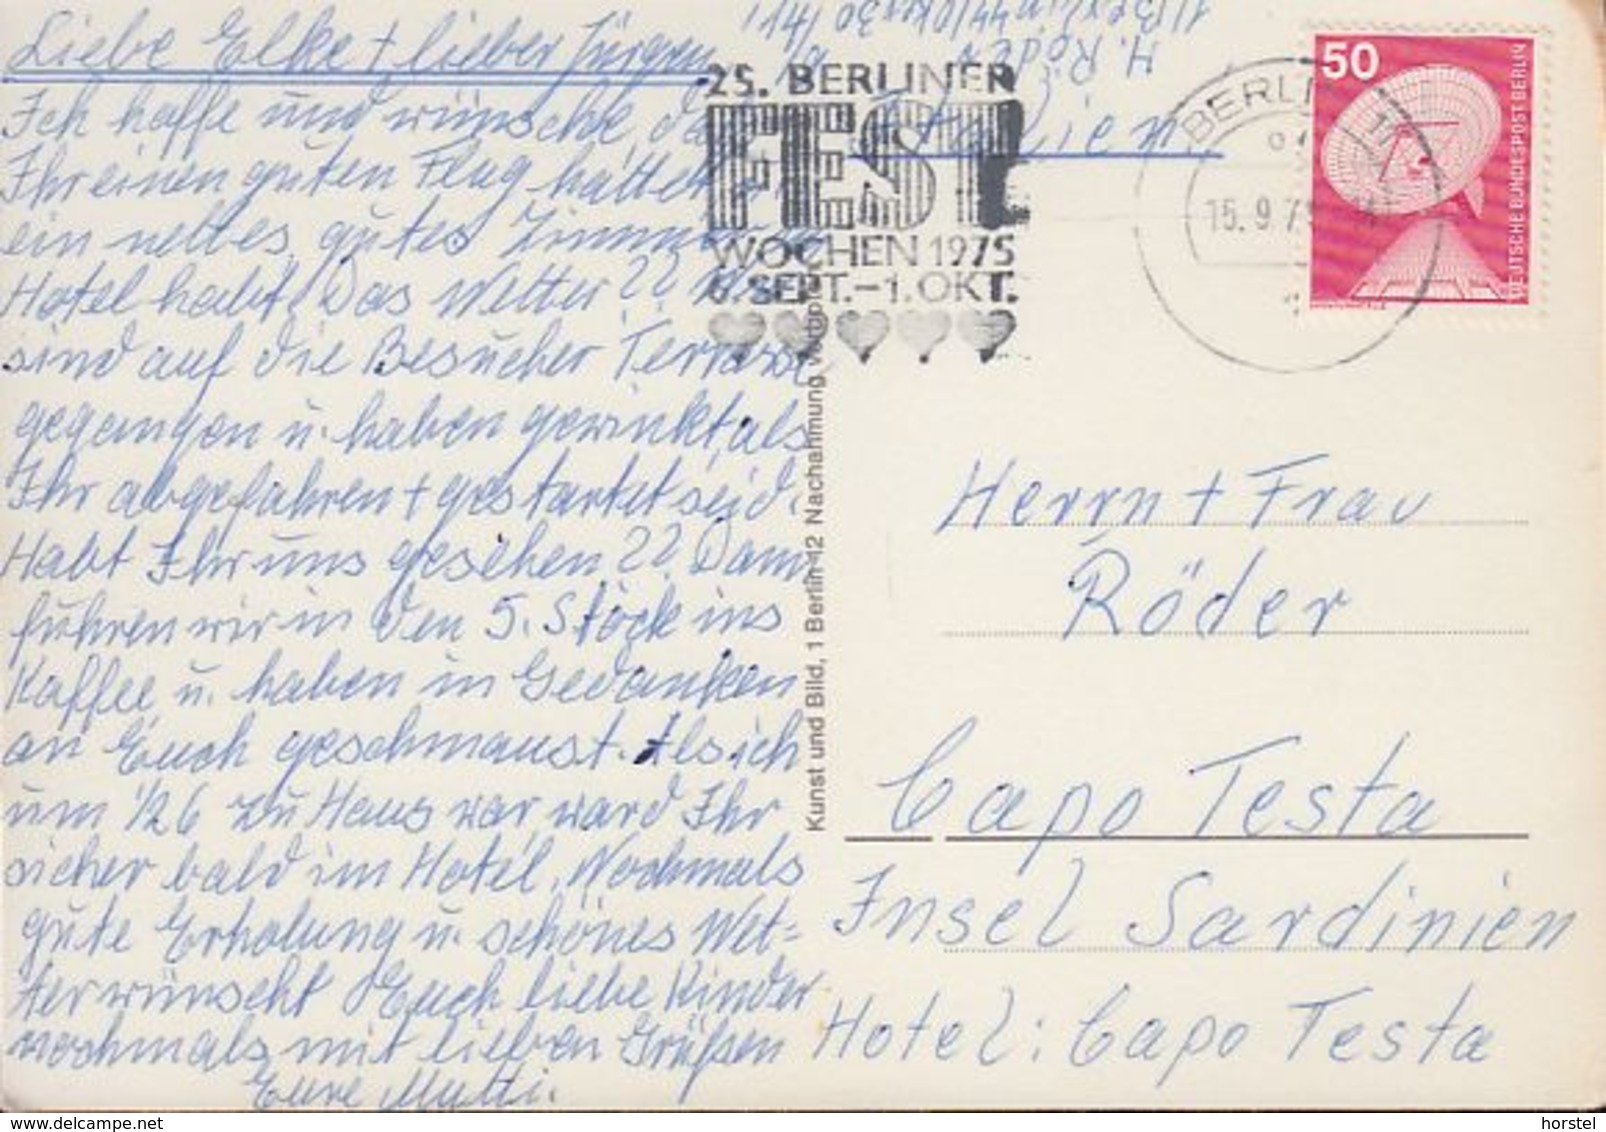 Liebe Elke + lieber Jürgen
Ich hoffe und wünsche da
Ihr einen guten Flug hattet
ein nettes, gutes Zimmer
Hotel habt. Das Wetter ??
sind auf die Besucher Terrasse
gegangen u. haben gewinkt, als
Ihr abgefahren + gestartet seid.
Habt Ihr uns gesehen ?? Dann
fuhren wir in den 5. Stock ins
Kaffee u. haben in Gedanken
an Euch geschmaust. Als ich
um ½6 zu Haus war ward Ihr
sicher bald im Hotel. Nochmals
gute Erholung u. schönes Wet=
ter wünscht Euch liebe Kinder
nochmals mit lieben Grüßen
Eure Mutti.
H. Röder
Italien
25. BERLINER
FEST
WOCHEN 1975
6. SEPT.–1. OKT.
BERLIN
15.9.75
50
DEUTSCHE BUNDESPOST BERLIN
Kunst und Bild, 1 Berlin 12 Nachahmung verboten
Herrn + Frau
Röder
Capo Testa
Insel Sardinien
Hotel: Capo Testa
www.delcampe.net
horstel